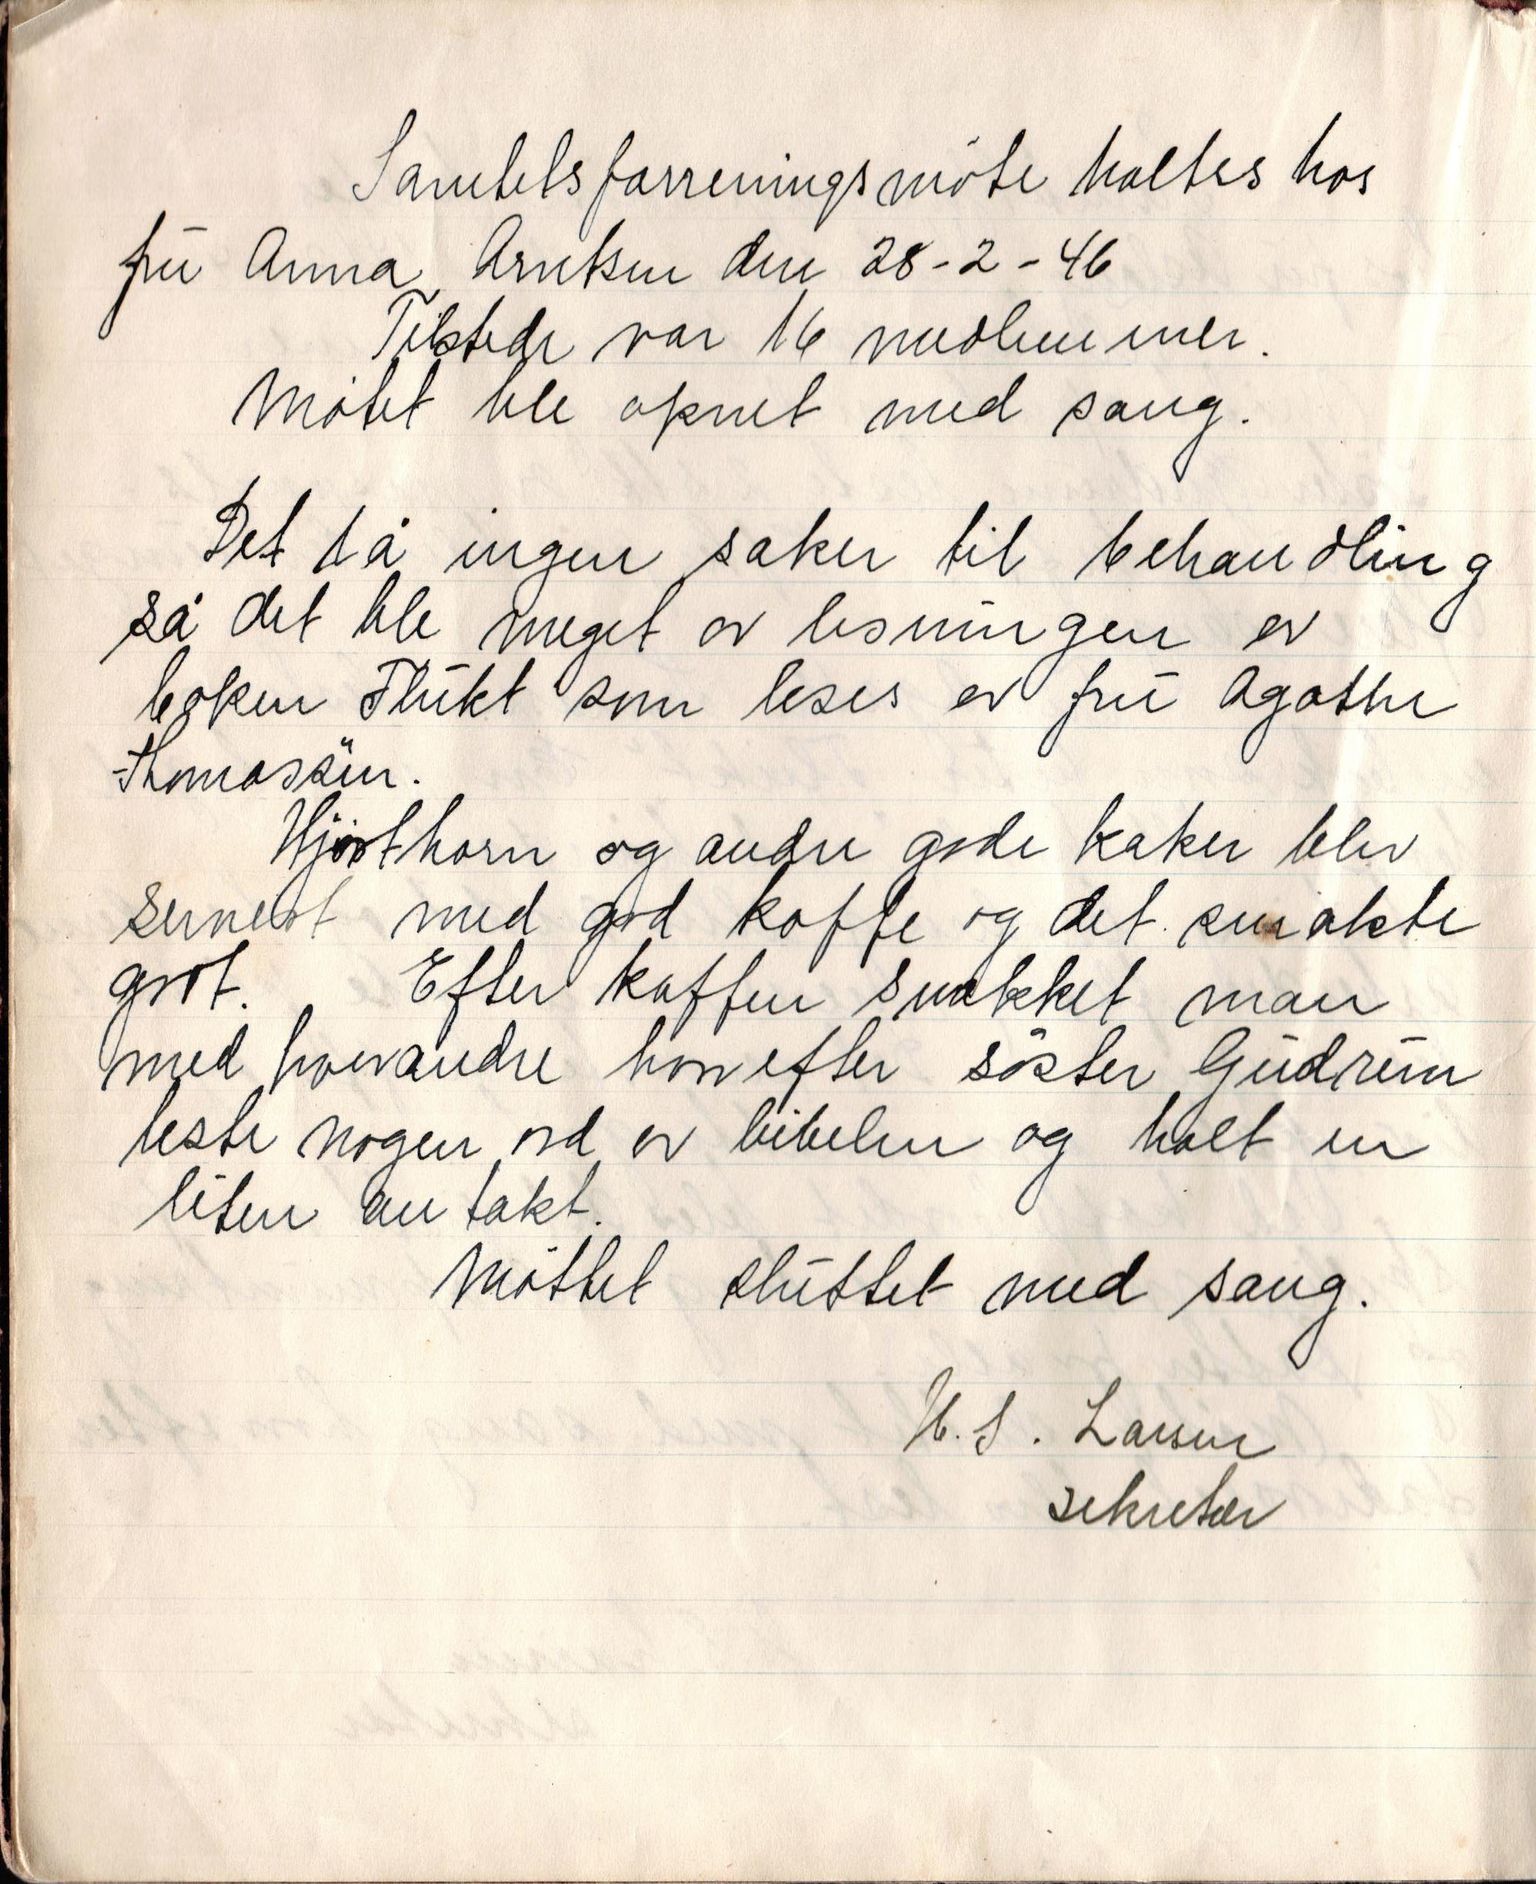 Samtelsforreningsmöte holtes hos
frü Anna Arntsen den 28-2-46
Tilstede var 16 medlemmer.
Mötet ble opnet med sang.
Det lå ingen saker til behandling
så det ble meget av lesningen av
boken Flükt som leses av frü Agathe
Thomassen.
Hjorthorn og andre gode kaker blev
servert med god koffe og det smakte
godt. Efter koffen snakket man
med hverandre hvorefter söster Güdrün
leste nogen ord av bibelen og holt en
liten antakt.
Möttet slüttet med sang.
H. S. Larsen
sekretær